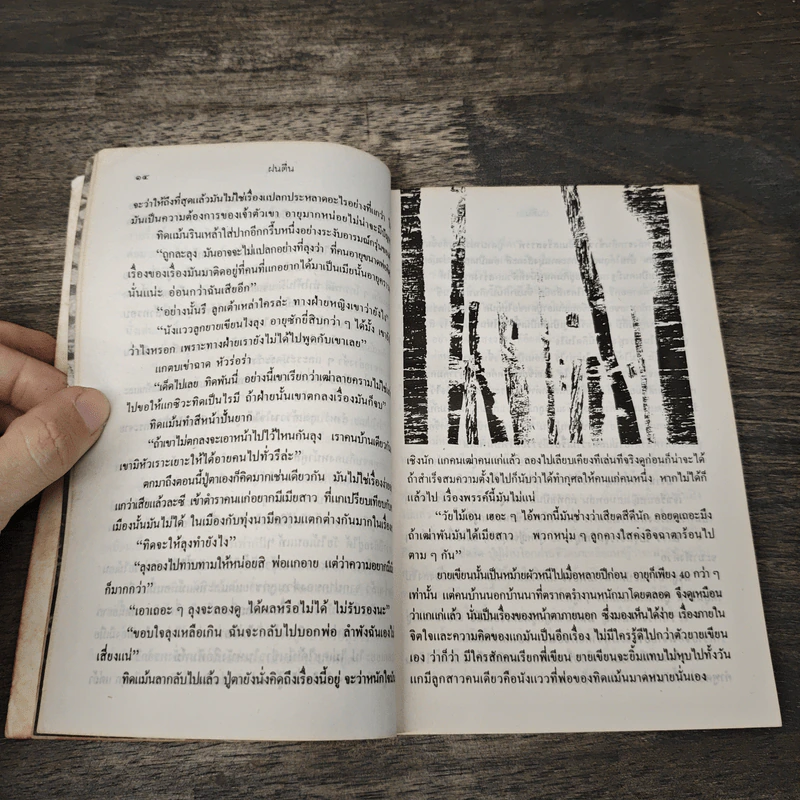 ๑๔
ฝนตื่น
จะว่าให้ถึงที่สุดแล้วมันไม่ใช่เรื่องแปลกประหลาดอะไรอย่างที่แกว่า
มันเป็นความต้องการของเจ้าตัวเขา อายุมากหน่อยไม่น่าจะมี
ทิดแม้นรินเหล้าใส่ปากอีกกรึ๊บหนึ่งอย่างระงับอารมณ์
“ถูกละลุง มันอาจจะไม่แปลกอย่างที่ลุงว่า ที่คนอายุขนาด
เรื่องของเรื่องมันมาติดอยู่ที่คนที่แกอยากได้มาเป็นเมียนั้นอายุ
นั่นแน่ะ อ่อนกว่าฉันเสียอีก”
“อย่างนั้นรึ ลูกเต้าเหล่าใครล่ะ ทางฝ่ายหญิงเขาว่ายังไง”
“นังแววลูกยายเขียนไงลุง อายุซักยี่สิบกว่า ๆ ได้มั้ง
ว่าไงหรอก เพราะทางฝ่ายเรายังไม่ได้ไปพูดกับเขาเลย”
แกตบเข่าฉาด หัวร่อร่า
“เด็ดไปเลย ทิดพันนี่ อย่างนี้เขาเรียกว่าเฒ่าลายครามไม่ใช่
ไปขอให้แกซิวะทิดเป็นไรมี ถ้าฝ่ายนั้นเขาตกลงเรื่องมันก็จบ”
ทิดแม้นทำสีหน้าปั้นยาก
“ถ้าเขาไม่ตกลงจะเอาหน้าไปไว้ไหนกันลุง เราคนบ้านเดียวกัน
เขามิหัวเราะเยาะให้ได้อายคนไปทั่วรึล่ะ”
ตกมาถึงตอนนี้ปู่ตาเองก็คิดมากเช่นเดียวกัน มันไม่ใช่เรื่อง
แกว่าเสียแล้วละซี เข้าตำราคนแก่อยากมีเมียสาว ที่แกเปรียบเทียบ
เมืองนั้นมันไม่ได้ ในเมืองกับทุ่งนามีความแตกต่างกันมากในเรื่อง
“ทิดจะให้ลุงทำยังไง”
“ลุงลองไปทาบทามให้หน่อยสิ พ่อแกอาย แต่ว่าความอยากมี
ก็มากกว่า”
“เอาเถอะ ๆ ลุงจะลองดู ได้ผลหรือไม่ได้ ไม่รับรองนะ”
“ขอบใจลุงเหลือเกิน ฉันจะกลับไปบอกพ่อ ลำพังฉันเอง
เสี่ยงแน่”
ทิดแม้นลากลับไปแล้ว ปู่ตายังนั่งคิดถึงเรื่องนี้อยู่ จะว่าหนักใจ
เชิงนัก แกคนเฒ่าคนแก่แล้ว ลองไปเลียบเคียงที่เล่นทีจริงดูก่อนก็น่าจะได้
ถ้าสำเร็จสมความตั้งใจไปก็นับว่าได้ทำกุศลให้คนแก่คนหนึ่ง หากไม่ได้ก็
แล้วไป เรื่องพรรค์นี้มันไม่แน่
“วัยไม้เอน เฮอะ ๆ ไอ้พวกนี้มันช่างว่าเสียดสีดีนัก คอยดูเถอะมึง
ถ้าเฒ่าพันมันได้เมียสาว พวกหนุ่ม ๆ ลูกคางใสคงอิจฉาตาร้อนไป
ตาม ๆ กัน”
ยายเขียนนั้นเป็นหม้ายผัวหนีไปเมื่อหลายปีก่อน อายุก็เพียง 40 กว่า ๆ
เท่านั้น แต่คนบ้านนอกบ้านนาที่ตรากตรำงานหนักมาโดยตลอด จึงดูเหมือน
ว่าแกแก่แล้ว นั่นเป็นเรื่องของหน้าตาภายนอก ซึ่งมองเห็นได้ง่าย เรื่องภายใน
จิตใจและความคิดของแกมันเป็นอีกเรื่อง ไม่มีใครรู้ดีไปกว่าตัวยายเขียน
เอง ว่าก็ว่า มีใครสักคนเรียกพี่เขียน ยายเขียนจะยิ้มแทบไม่หุบไปทั้งวัน
แกมีลูกสาวคนเดียวคือนังแววที่พ่อของทิดแม้นมาดหมายนั่นเอง